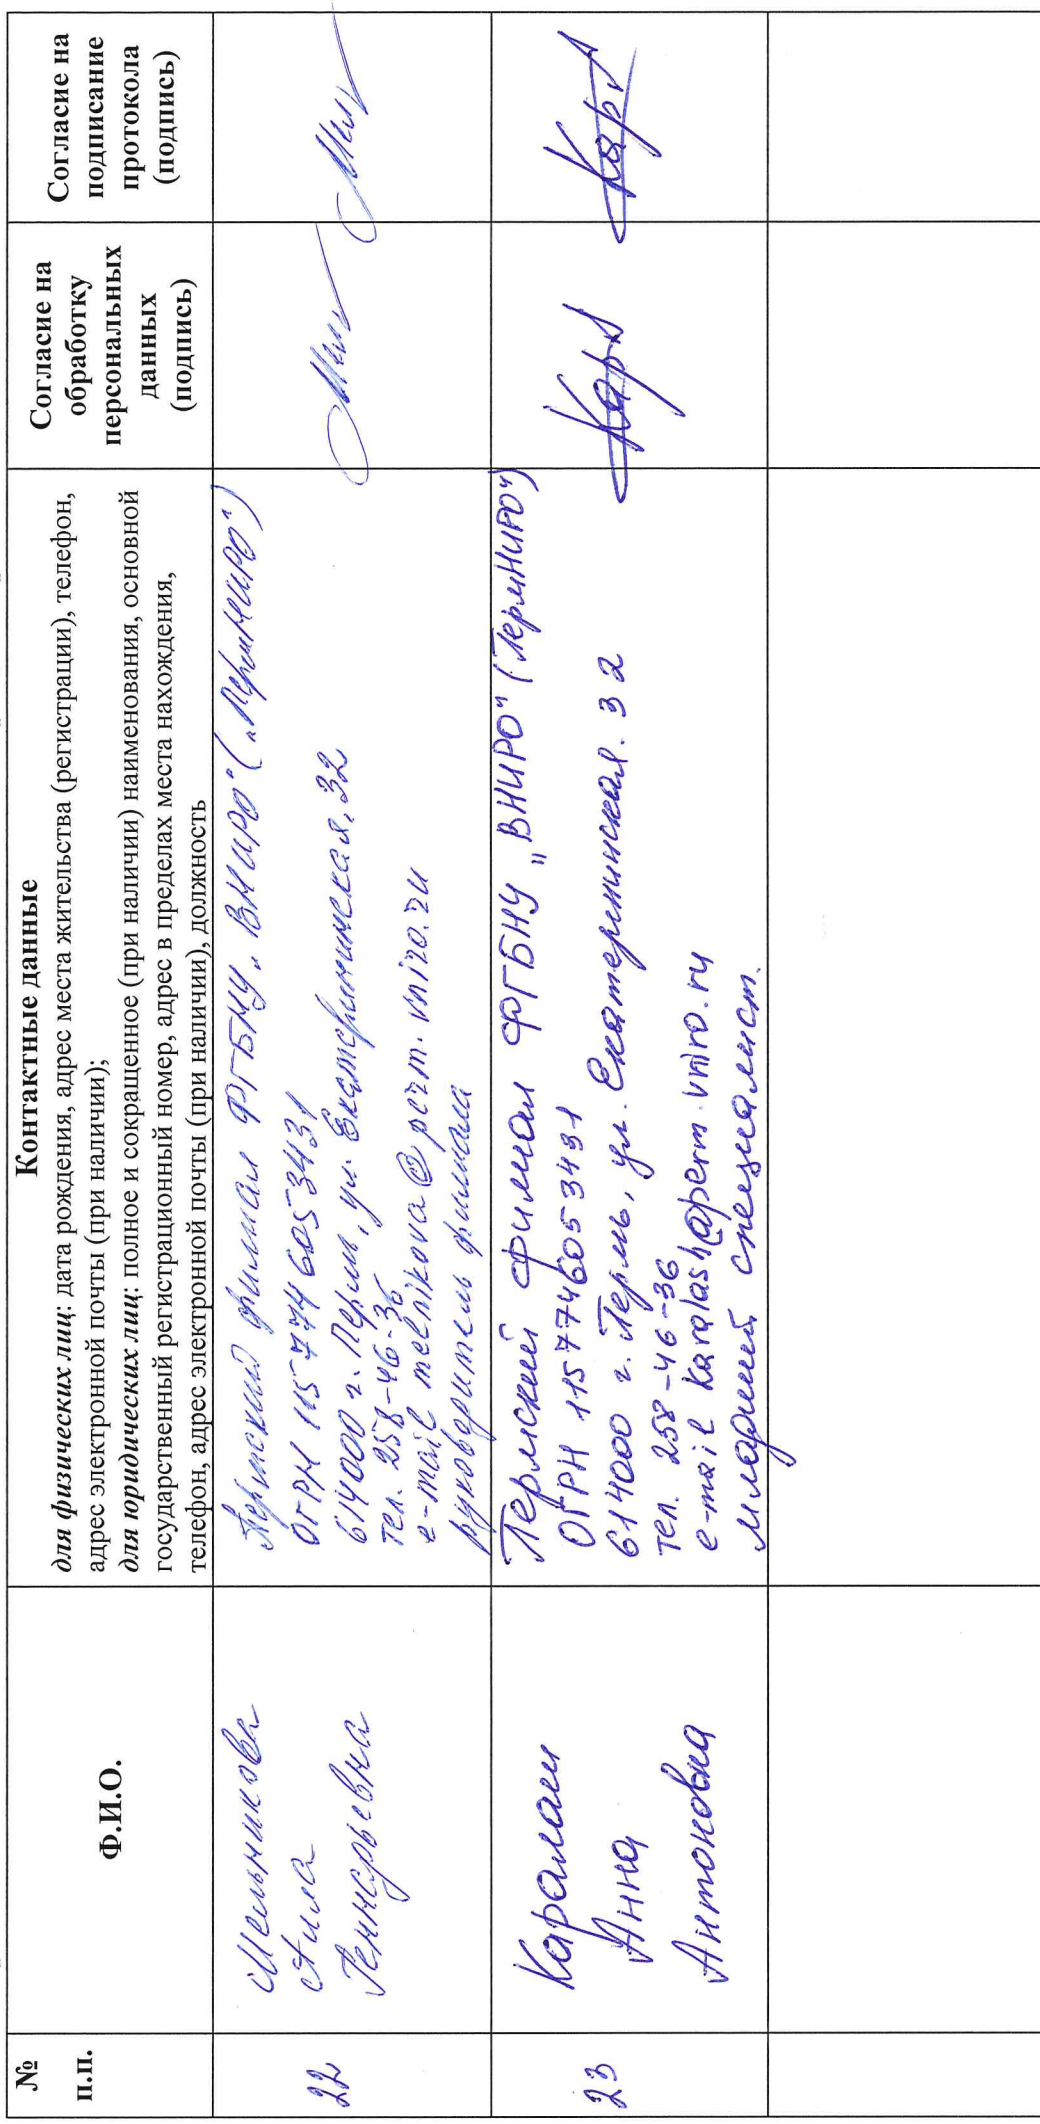 №
п.п.
Ф.И.О.
Контактные данные
для физических лиц: дата рождения, адрес места жительства (регистрации), телефон,
адрес электронной почты (при наличии);
для юридических лиц: полное и сокращенное (при наличии) наименования, основной
государственный регистрационный номер, адрес в пределах места нахождения,
телефон, адрес электронной почты (при наличии), должность
Согласие на
обработку
персональных
данных
(подпись)
Согласие на
подписание
протокола
(подпись)
22
Мельникова
Геннадьевна
Пермский филиал ФГБНУ „ВНИРО" („ПермНИРО")
ОГРН 1157746053431
614000 г. Пермь, ул. Екатерининская, 32
тел. 258-46-36
e-mail melnikova@perm.vniro.ru
руководитель филиала
23
Каралаш
Анна
Антоновна
Пермский филиал ФГБНУ „ВНИРО" (ПермНИРО")
ОГРН 1157746053431
614000 г. Пермь, ул. Екатерининская. 32
тел. 258-46-36
e-mail karalash@perm.vniro.ru
младший специалист.